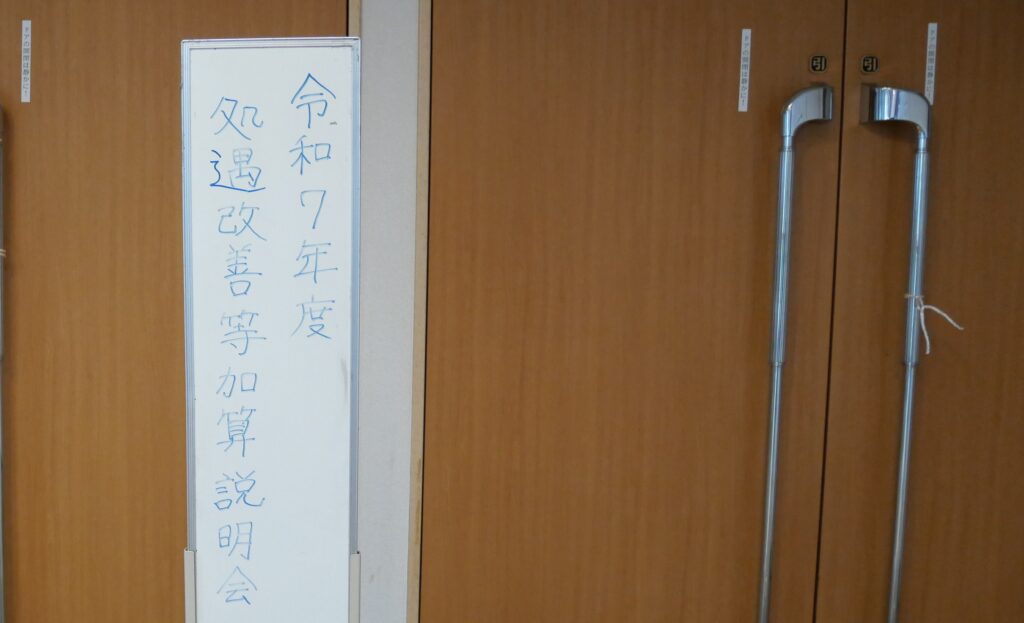 令和7年度
処遇改善等加算説明会
ドアの開閉は静かに!
ドアの開閉は静かに!
引
引
ドアの開閉は静かに!